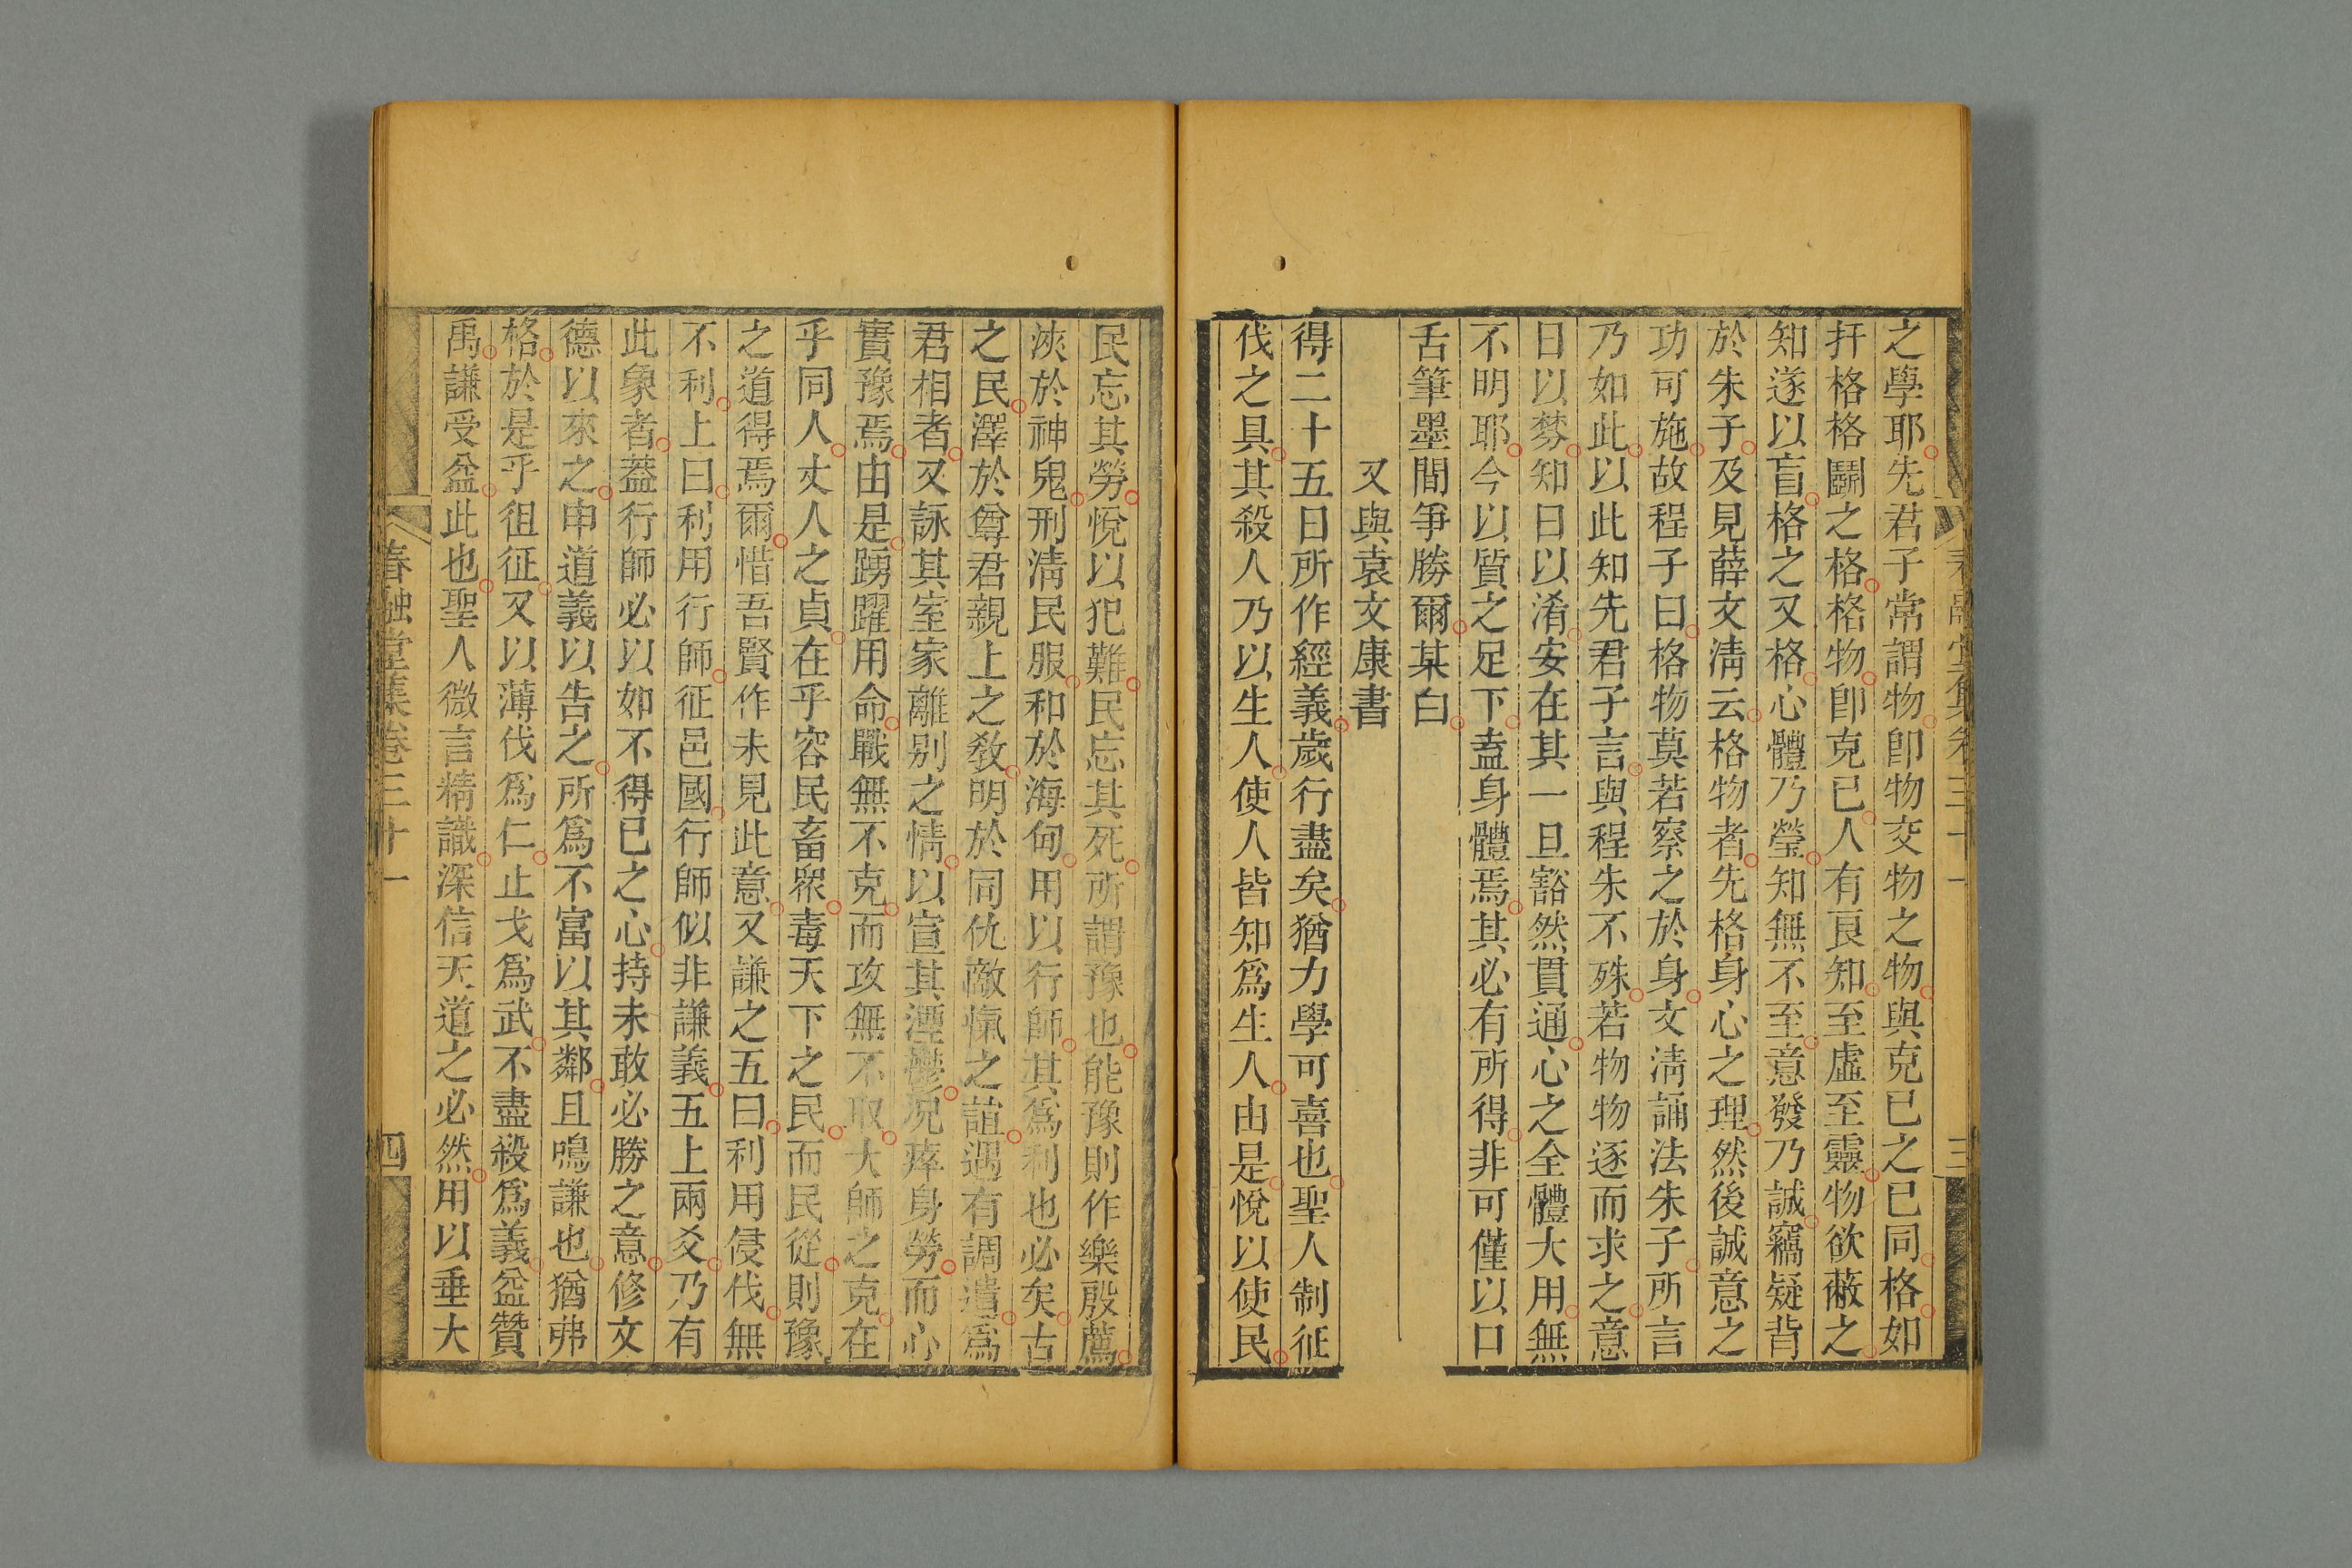 之學耶先君子常謂物卽物交物之物與克已之已同格如
扞格格鬭之格格物卽克已人有良知至虛至靈物欲蔽之
知遂以盲格之又格心體乃瑩知無不至意發乃誠竊疑背
於朱子及見薛文淸云格物者先格身心之理然後誠意之
功可施故程子曰格物莫若察之於身文淸誦法朱子所言
乃如此以此知先君子言與程朱不殊若物物逐而求之意
日以棼知日以淆安在其一旦豁然貫通心之全體大用無
不明耶今以質之足下盍身體焉其必有所得非可僅以口
舌筆墨間爭勝爾某白
又與袁文康書
得二十五日所作經義歲行盡矣猶力學可喜也聖人制征
伐之具其殺人乃以生人使人皆知爲生人由是悅以使民
民忘其勞悅以犯難民忘其死所謂豫也能豫則作樂殷薦
浹於神鬼刑淸民服和於海甸用以行師其爲利也必矣古
之民澤於尊君親上之敎明於同仇敵愾之誼遇有調遣爲
君相者又詠其室家離別之情以宣其湮鬱況瘁身勞而心
實豫焉由是踴躍用命戰無不克而攻無不取大師之克在
乎同人丈人之貞在乎容民畜眾毒天下之民而民從則豫
之道得焉爾惜吾賢作未見此意又謙之五曰利用侵伐無
不利上曰利用行師征邑國行師似非謙義五上兩爻乃有
此象者葢行師必以如不得已之心持未敢必勝之意修文
德以來之申道義以告之所爲不富以其鄰且鳴謙也猶弗
格於是乎徂征又以薄伐爲仁止戈爲武不盡殺爲義益贊
禹謙受益此也聖人微言精識深信天道之必然用以垂大
春融堂集卷三十一
四